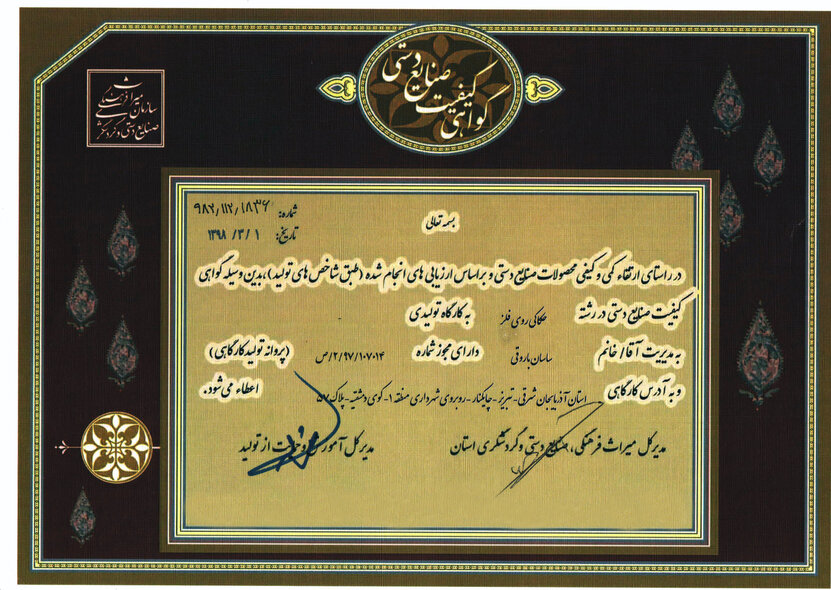 گواهی کیفیت صنایع دستی
سازمان میراث فرهنگی
صنایع دستی و گردشگری
شماره: ۹۸۲/۱۱۲/۱۸۳۶
تاریخ: ۱۳۹۸/۳/۱
بسمه تعالی
در راستای ارتقاء کمی و کیفی محصولات صنایع دستی و براساس ارزیابی های انجام شده (طبق شاخص های تولید)، بدین وسیله گواهی
کیفیت صنایع دستی در رشته حکاکی روی فلز به کارگاه تولیدی
به مدیریت آقا/ خانم ساسان باروقی دارای مجوز شماره ۲/۹۷/۱۰۷۰۱۴/ص (پروانه تولید کارگاهی)
و به آدرس کارگاهی استان آذربایجان شرقی- تبریز - چایکنار - روبروی شهرداری منطقه ۱- کوی دشتیه- پلاک ۵۷ اعطاء می شود.
مدیرکل میراث فرهنگی، صنایع دستی و گردشگری استان
مدیرکل آموزش و حمایت از تولید